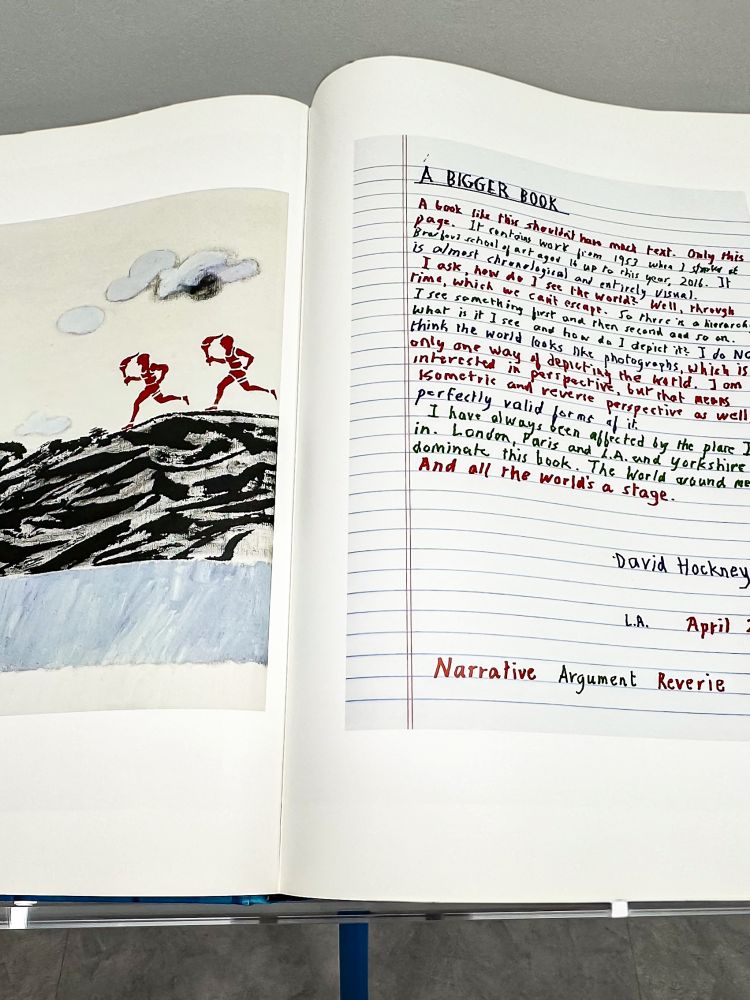 A BIGGER BOOK
A book like this shouldn't have much text. Only this
page. It contains work from 1953 when I started at
Bradford school of art aged 16 up to this year, 2016. It
is almost chronological and entirely visual.
I ask, how do I see the world? Well, through
time, which we can't escape. So there is a
I see something first and then second and so on.
what is it I see and how do I depict it? I do
think the world looks like photographs, which is
only one way of depicting the world. I am
interested in perspective, but that means
isometric and reverse perspective as well
perfectly valid forms of it.
I have always been affected by the place I
in. London, Paris and L.A. and Yorkshire
dominate this book. The World around me
And all the world's a stage.
David Hockney
L.A. April
Narrative Argument Reverie